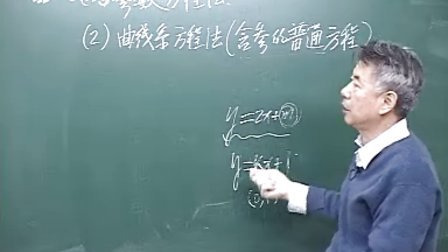 参数方程法
(2) 曲线系方程法(含参的普通方程)
y=2x+m
y=kx+1
(0,